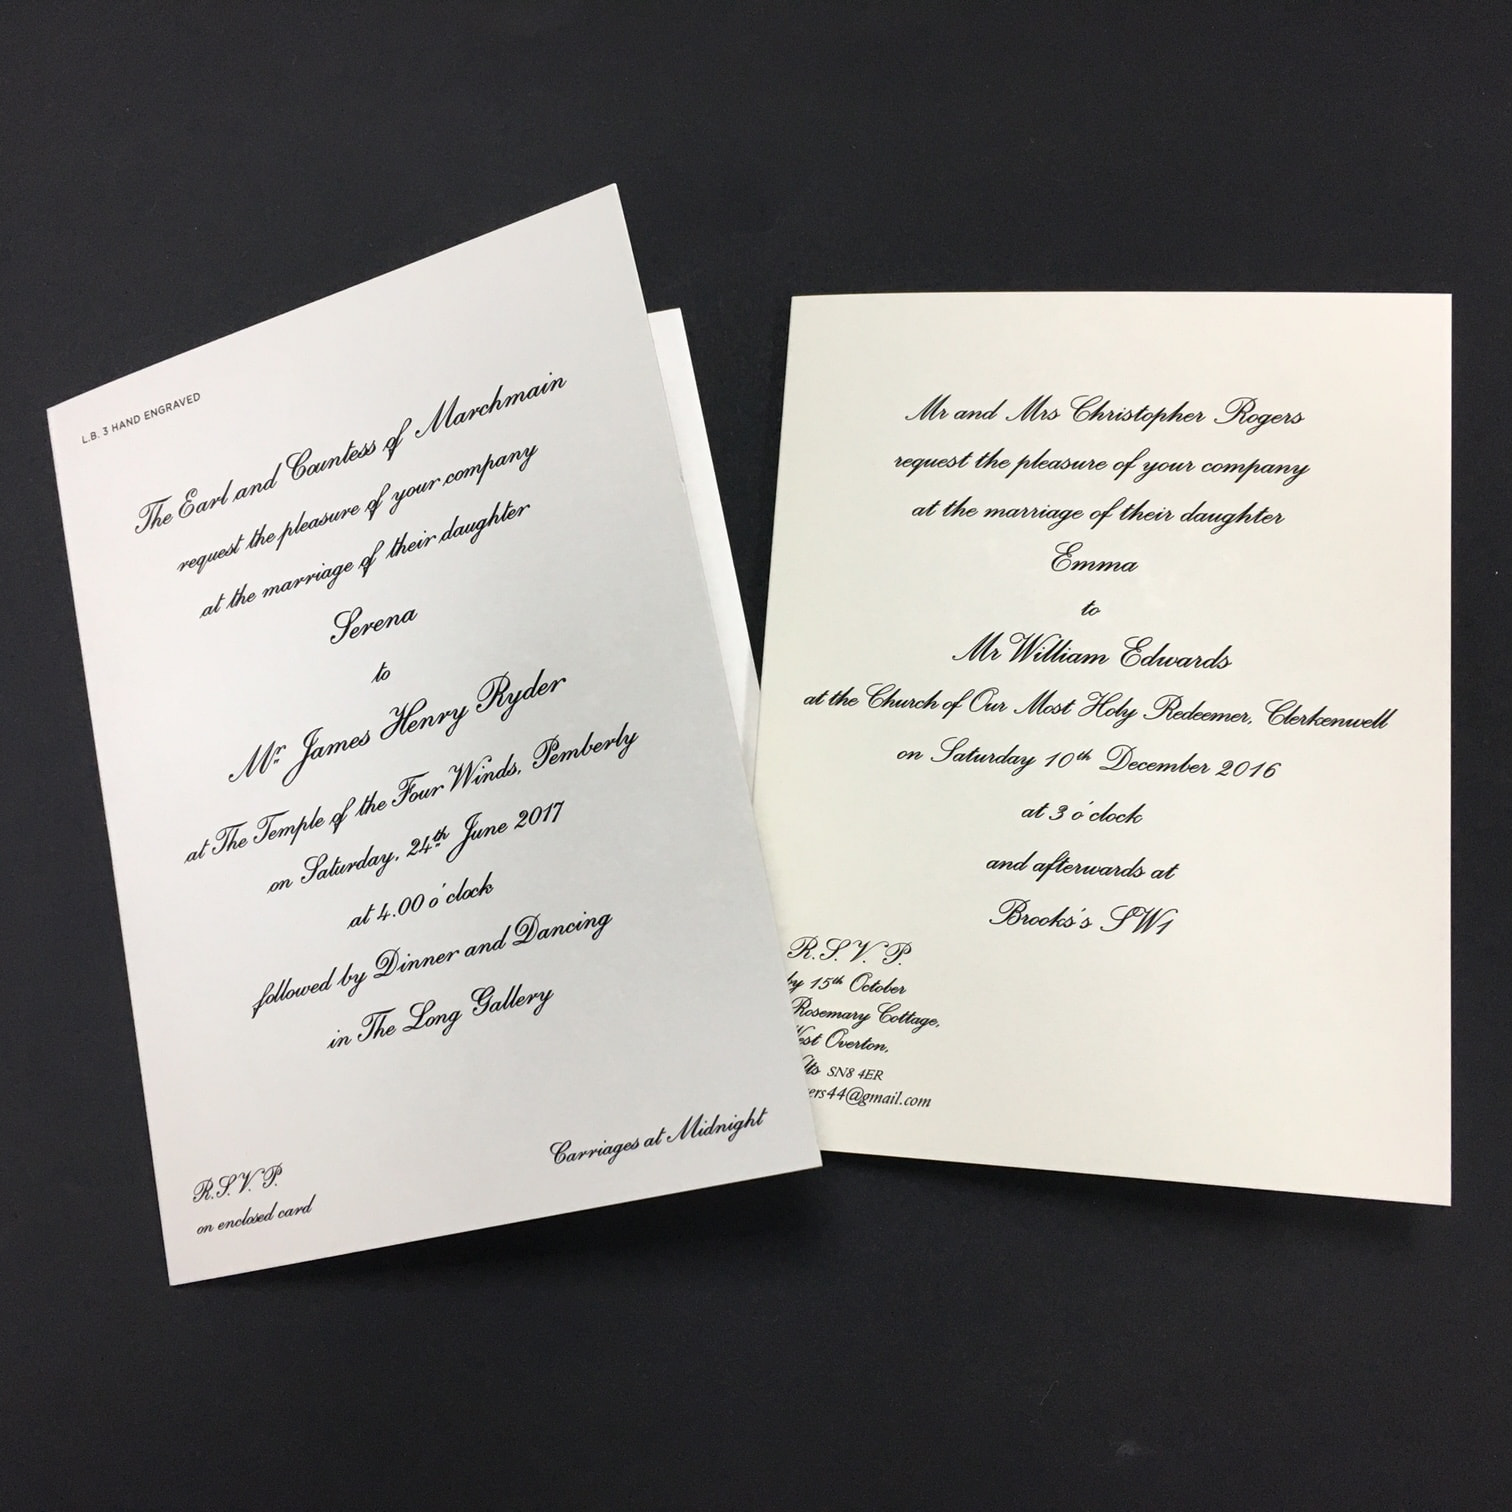 L.B. 3 HAND ENGRAVED
The Earl and Countess of Marchmain
request the pleasure of your company
at the marriage of their daughter
Serena
to
Mr James Henry Ryder
at The Temple of the Four Winds, Pemberly
on Saturday, 24th June 2017
at 4.00 o'clock
followed by Dinner and Dancing
in The Long Gallery
Carriages at Midnight
R.S.V.P.
on enclosed card
Mr and Mrs Christopher Rogers
request the pleasure of your company
at the marriage of their daughter
Emma
to
Mr William Edwards
at the Church of Our Most Holy Redeemer, Clerkenwell
on Saturday 10th December 2016
at 3 o'clock
and afterwards at
Brooks's SW1
R.S.V.P.
by 15th October
Rosemary Cottage,
West Overton,
SN8 4ER
ers44@gmail.com